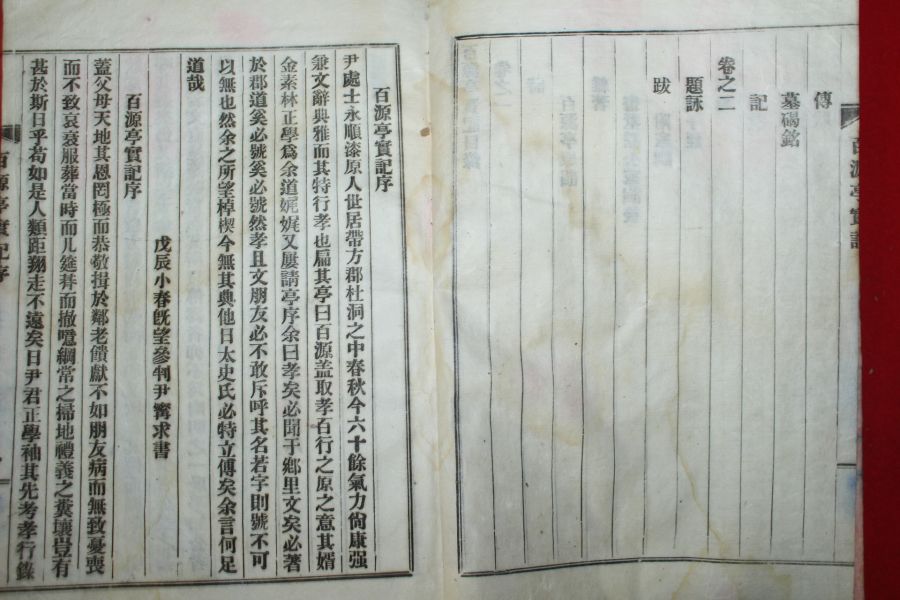 傳
墓碣銘
記
卷之二
題詠
跋
百源亭實記
百源亭實記序
尹處士永順漆原人世居帶方郡杜洞之中春秋今六十餘氣力尙康强
兼文辭典雅而其特行孝也扁其亭曰百源盖取孝百行之原之意其婿
金素林正學爲余道娓娓又屢請亭序余曰孝矣必聞于鄕里文矣必著
於郡道奚必號奚必號然孝且文朋友必不敢斥呼其名若字則號不可
以無也然余之所望棹楔今無其典他日太史氏必特立傳矣余言何足
道哉
戊辰小春旣望參判尹甯求書
百源亭實記序
蓋父母天地其恩罔極而恭敬揖於鄰老饋獻不如朋友病而無致憂喪
而不致哀衰服葬當時而几筵朞而撤噫綱常之掃地禮義之糞壤豈有
甚於斯日乎苟如是人類距翔走不遠矣日尹君正學袖其先考孝行錄
百源亭實記序